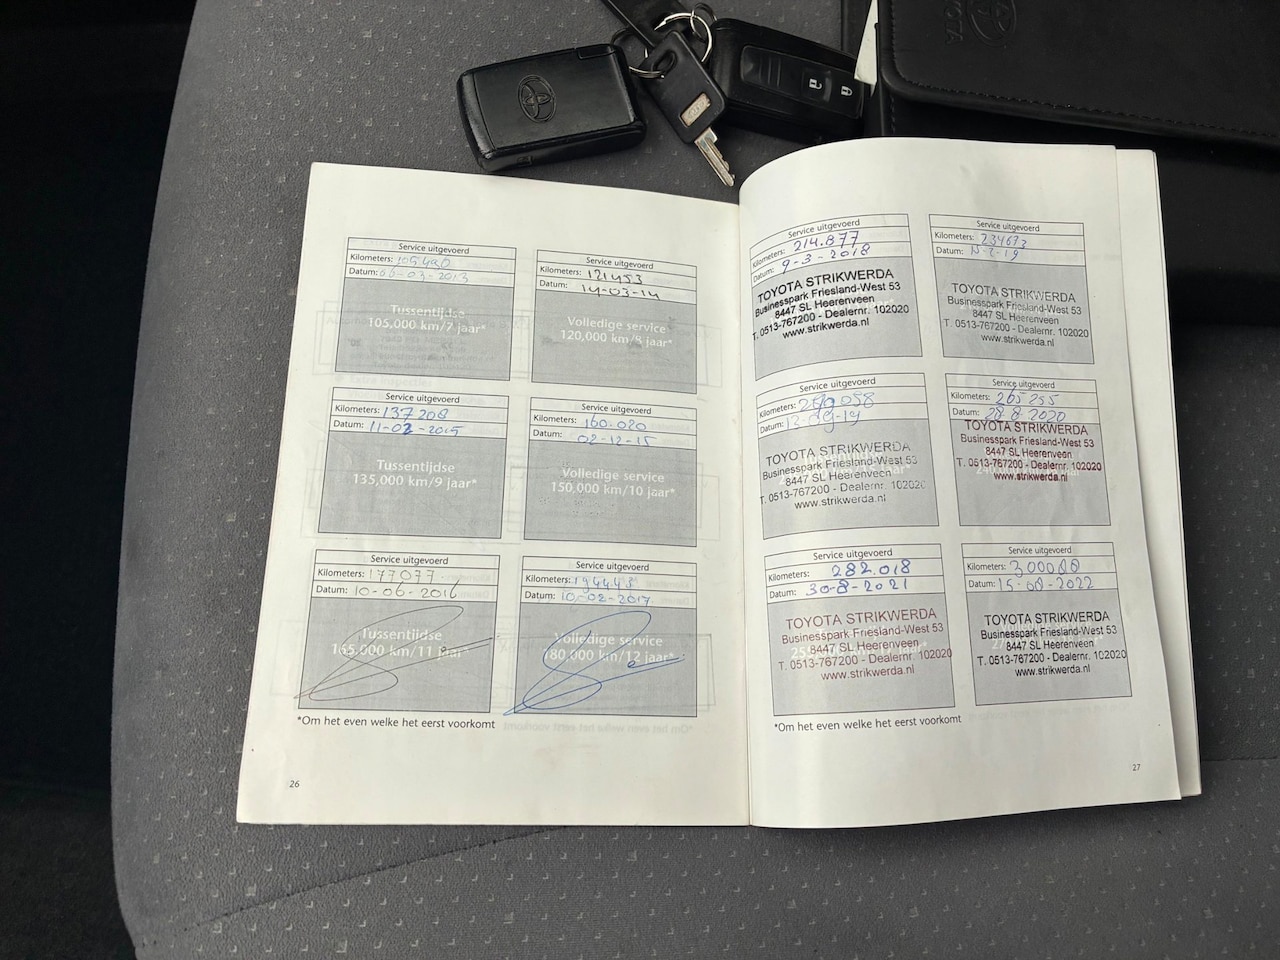 Service uitgevoerd
Kilometers: 105490
Datum: 06-03-2013
Tussentijdse
105,000 km/7 jaar*
Service uitgevoerd
Kilometers: 121453
Datum: 14-03-14
Volledige service
120,000 km/8 jaar*
Service uitgevoerd
Kilometers: 137208
Datum: 11-02-2015
Tussentijdse
135,000 km/9 jaar*
Service uitgevoerd
Kilometers: 160.020
Datum: 02-12-15
Volledige service
150,000 km/10 jaar*
Service uitgevoerd
Kilometers: 177077
Datum: 10-06-2016
Tussentijdse
165,000 km/11 jaar*
Service uitgevoerd
Kilometers: 194448
Datum: 10-02-2017
Volledige service
180,000 km/12 jaar*
*Om het even welke het eerst voorkomt
26
Service uitgevoerd
Kilometers: 214.877
Datum: 9-3-2018
TOYOTA STRIKWERDA
Businesspark Friesland-West 53
8447 SL Heerenveen
T. 0513-767200 - Dealernr. 102020
www.strikwerda.nl
Service uitgevoerd
Kilometers: 234673
Datum:
TOYOTA STRIKWERDA
Businesspark Friesland-West 53
8447 SL Heerenveen
T. 0513-767200 - Dealernr. 102020
www.strikwerda.nl
Service uitgevoerd
Kilometers:
Datum: 12-09-19
TOYOTA STRIKWERDA
Businesspark Friesland-West 53
8447 SL Heerenveen
T. 0513-767200 - Dealernr. 102020
www.strikwerda.nl
Service uitgevoerd
Kilometers: 265255
Datum: 28-8-2020
TOYOTA STRIKWERDA
Businesspark Friesland-West 53
8447 SL Heerenveen
T. 0513-767200 - Dealernr. 102020
www.strikwerda.nl
Service uitgevoerd
Kilometers: 282.018
Datum: 30-8-2021
TOYOTA STRIKWERDA
Businesspark Friesland-West 53
8447 SL Heerenveen
T. 0513-767200 - Dealernr. 102020
www.strikwerda.nl
Service uitgevoerd
Kilometers:
Datum: 15-08-2022
TOYOTA STRIKWERDA
Businesspark Friesland-West 53
8447 SL Heerenveen
T. 0513-767200 - Dealernr. 102020
www.strikwerda.nl
*Om het even welke het eerst voorkomt
27